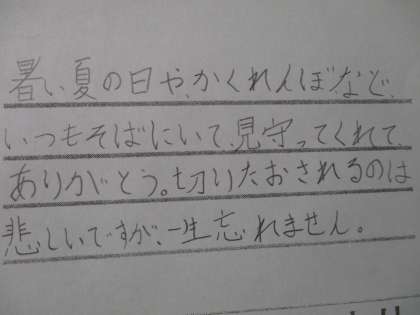 暑い夏の日や、かくれんぼなど、
いつもそばにいて、見守ってくれて、
ありがとう。切りたおされるのは
悲しいですが、一生忘れません。